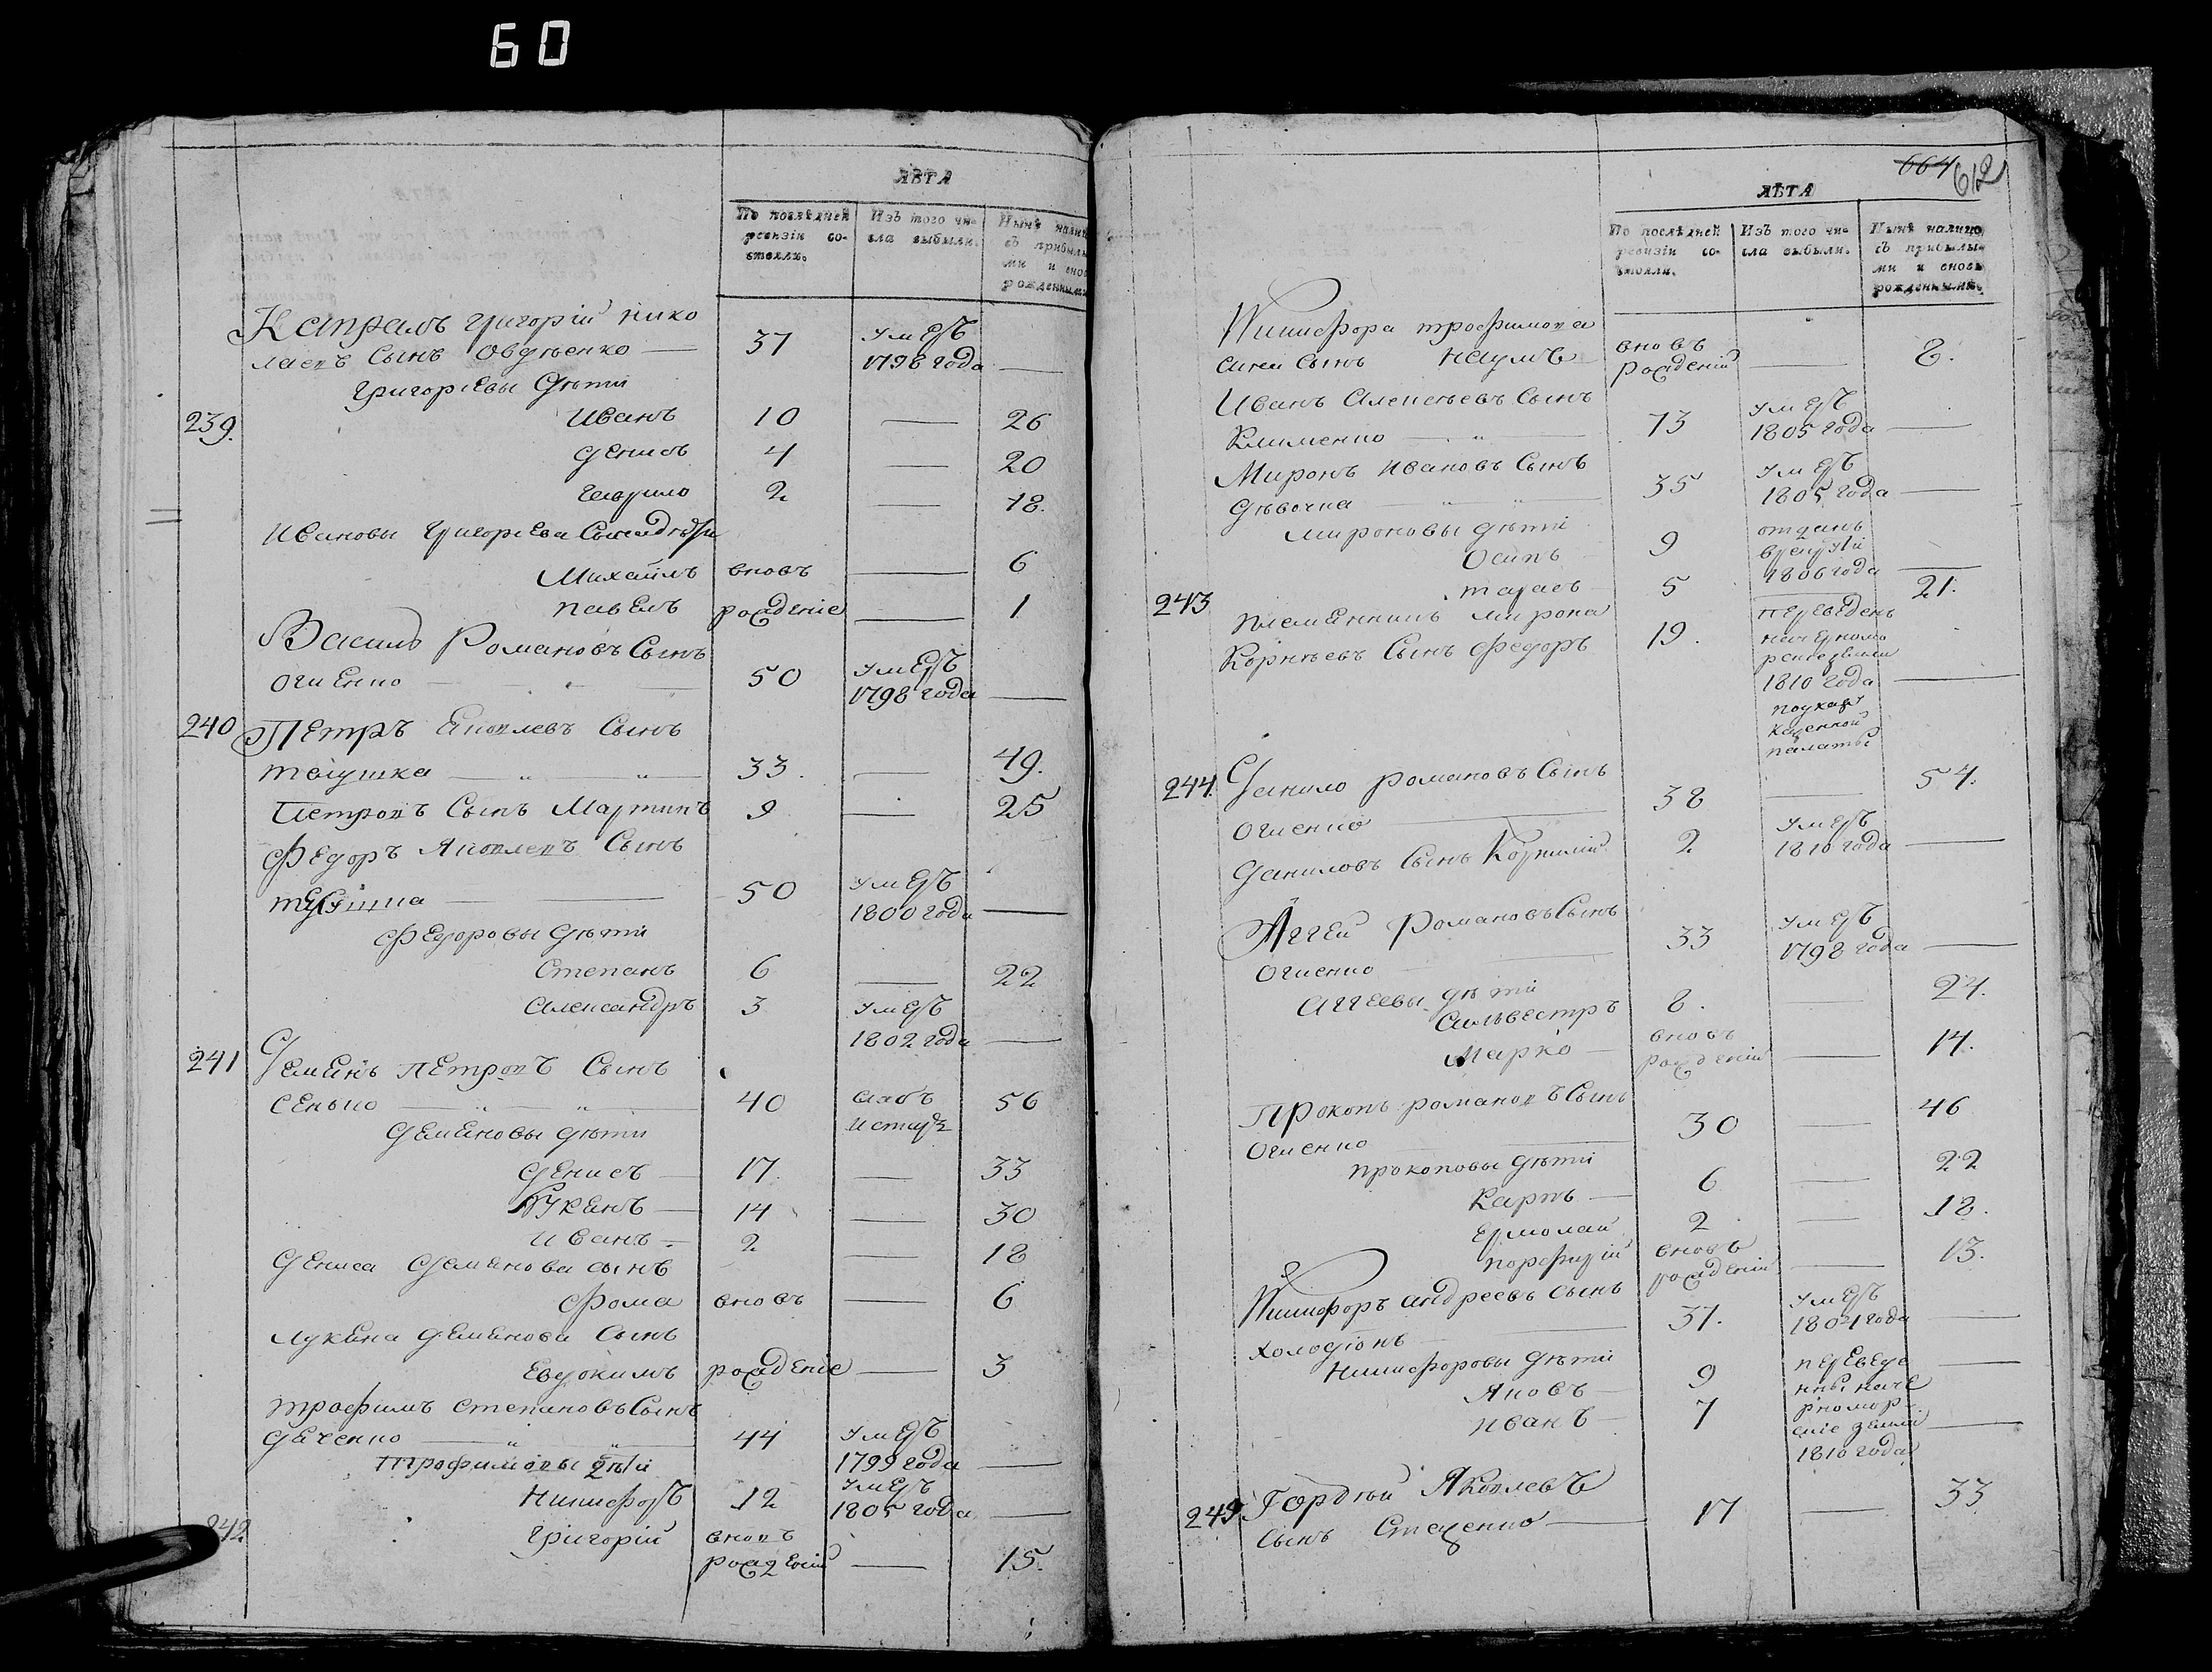 60
ЛѢТА
По послѣдней ревизіи состояли.
Изъ того числа выбыли.
Нынѣ налицо съ прибылыми и вновь рожденными.
Капралъ Григорій Нико
лаевъ Сынъ Овдѣенко — 37 умеръ 1798 года —
Григорьевы Дѣти
239. Иванъ 10 — 26
Денисъ 4 — 20
Гаврило 2 — 18.
Ивановы Григорьева Сына дѣти
Михайлъ вновь — 6
Павелъ рожденіе — 1
Василь Романовъ Сынъ
Огиенко — 50 умеръ 1798 года —
240 Петръ Яковлевъ Сынъ
33. — 49.
Петровъ Сынъ Мартинъ 9 — 25
Федоръ Яковлевъ Сынъ
50 умеръ 1800 года —
Федоровы Дѣти
Степанъ 6 — 22
Александръ 3 умеръ 1802 года —
241 Семенъ Петровъ Сынъ
Сенько — 40 слабъ и старъ 56
Семеновы дѣти
Денисъ — 17. — 33
Лукянъ — 14 — 30
Иванъ — 2 — 18
Дениса Семенова сынъ
Фома вновь — 6
Лукяна Семенова Сынъ
Евдокимъ рожденіе — 3
Трофимъ Степановъ Сынъ
44 умеръ 1799 года —
Трофимовы дѣти
Никифоръ 12 умеръ 1805 года —
242 Григорій вновь рожденій — 15.
664 612
ЛѢТА
По послѣдней ревизіи состояли.
Изъ того числа выбыли.
Нынѣ налицо съ прибылыми и вновь рожденными.
Никифора Трофимова
Сынъ Наумъ вновь рожденій — 8.
Иванъ Алексѣевъ Сынъ
Клименко — 73 умеръ 1805 года —
Миронъ Ивановъ Сынъ
Дѣвочка 35 умеръ 1805 года —
Мироновы дѣти
Осипъ 9 отданъ в рекруты 1806 года —
243 Тарасъ 5 — 21.
Племянникъ Мирона
Корнѣевъ Сынъ Федоръ 19. переведенъ на черномо 1810 года —
по указу казенной палаты
244. Данило Романовъ Сынъ
Огиенко — 38 — 54.
Даниловъ Сынъ Корнилій 2 умеръ 1810 года —
Аггей Романовъ Сынъ
Огиенко 33 умеръ 1798 года —
Аггеевы дѣти
Сильвестръ 8. — 24.
Марко — вновь рожденій — 14.
Прокопъ Романовъ Сынъ
Огиенко 30 — 46
Прокоповы дѣти
Карпъ — 6 — 22
Ермолай 2 — 18.
Порфирій вновь рожденій — 13.
Никифоръ Андреевъ сынъ
31. умеръ 1804 года —
Никифоровы дѣти
Яковъ — 9 переведе —
Иванъ — 7 нны на че рномор скіе земли 1810 года —
245 Гордѣй Яковлевъ
сынъ Стаценко — 17 — 33